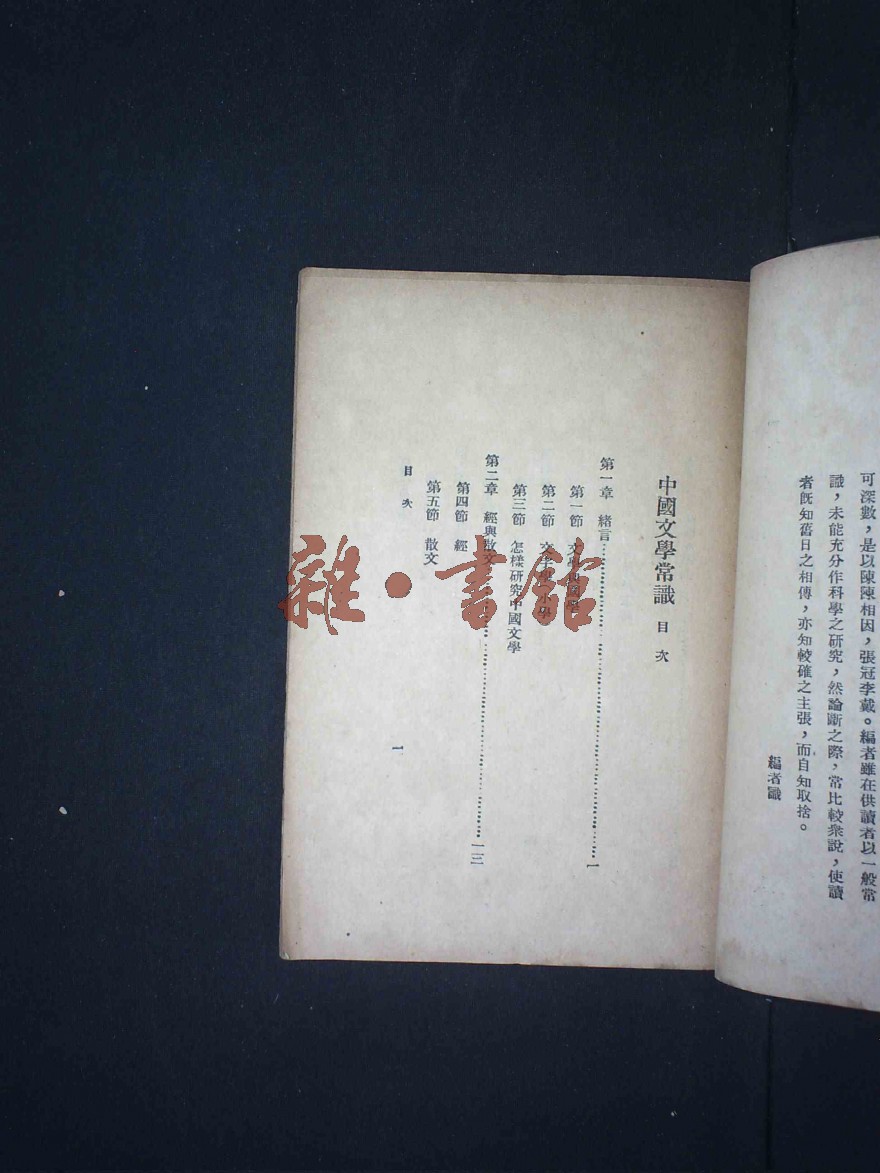 可深數，是以陳陳相因，張冠李戴。編者雖在供讀者以一般常
識，未能充分作科學之研究，然論斷之際，常比較衆說，使讀
者旣知舊日之相傳，亦知較確之主張，而自知取捨。
編者識
中國文學常識 目次
第一章 緒言……一
第一節 文學與國學
第二節 文字學小學
第三節 怎樣研究中國文學
第二章 經與散文……一三
第四節 經
第五節 散文
目次
一
雜·書館